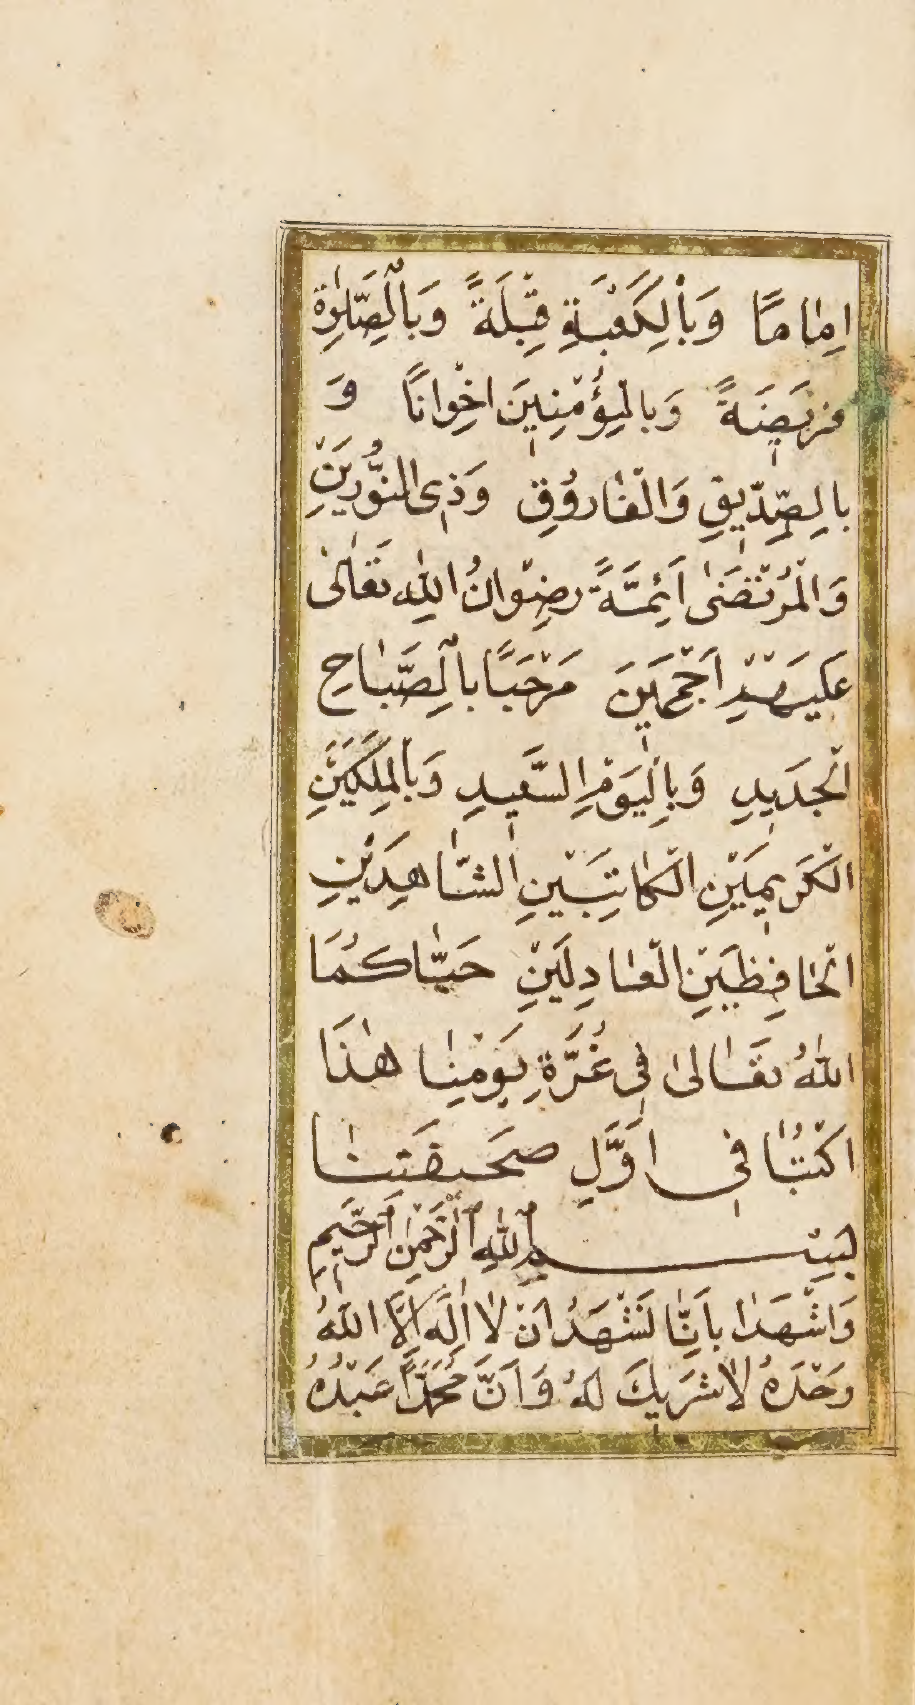 اِمَامًا وَبِالْكَعْبَةِ قِبْلَةً وَبِالصَّلٰوةِ
فَرِيضَةً وَبِالْمُؤْمِنِينَ اِخْوَانًا وَ
بِالصِّدِّيقِ وَالْفَارُوقِ وَذِى النُّورَيْنِ
وَالْمُرْتَضَىٰ اَئِمَّةً رِضْوَانُ اللهِ تَعَالىٰ
عَلَيْهِمْ اَجْمَعِينَ مَرْحَبًا بِالصَّبَاحِ
الْجَدِيدِ وَبِالْيَوْمِ السَّعِيدِ وَبِالْمَلَكَيْنِ
الْكَرِيمَيْنِ الْكَاتِبَيْنِ الشَّاهِدَيْنِ
الْحَافِظَيْنِ الْعَادِلَيْنِ حَيَّاكُمَا
اللهُ تَعَالىٰ فِى غُرَّةِ يَوْمِنَا هٰذَا
اُكْتُبَا فِى اَوَّلِ صَحِيفَتِنَا
بِسْمِ اللهِ الرَّحْمٰنِ الرَّحِيمِ
وَاشْهَدَا بِاَنَّا نَشْهَدُ اَنْ لَا اِلٰهَ اِلَّا اللهُ
وَحْدَهُ لَا شَرِيكَ لَهُ وَاَنَّ مُحَمَّدًا عَبْدُهُ